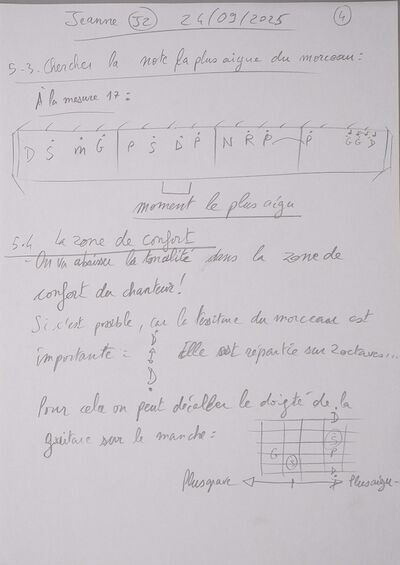 Jeanne J2 24/09/2025 4
5-3. Chercher la note la plus aigue du morceau:
À la mesure 17:
D S m G | P S D P | N R P P | P G G D
moment le plus aigu
5.4 La zone de confort
- On va abaisser la tonalité dans la zone de
confort du chanteur!
Si c'est possible, car la tessiture du morceau est
importante = D S D Elle est répartie sur 2 octaves...
Pour cela on peut décaller le doigté de la
guitare sur le manche:
D
S
G P
D
Plus grave Plus aigu